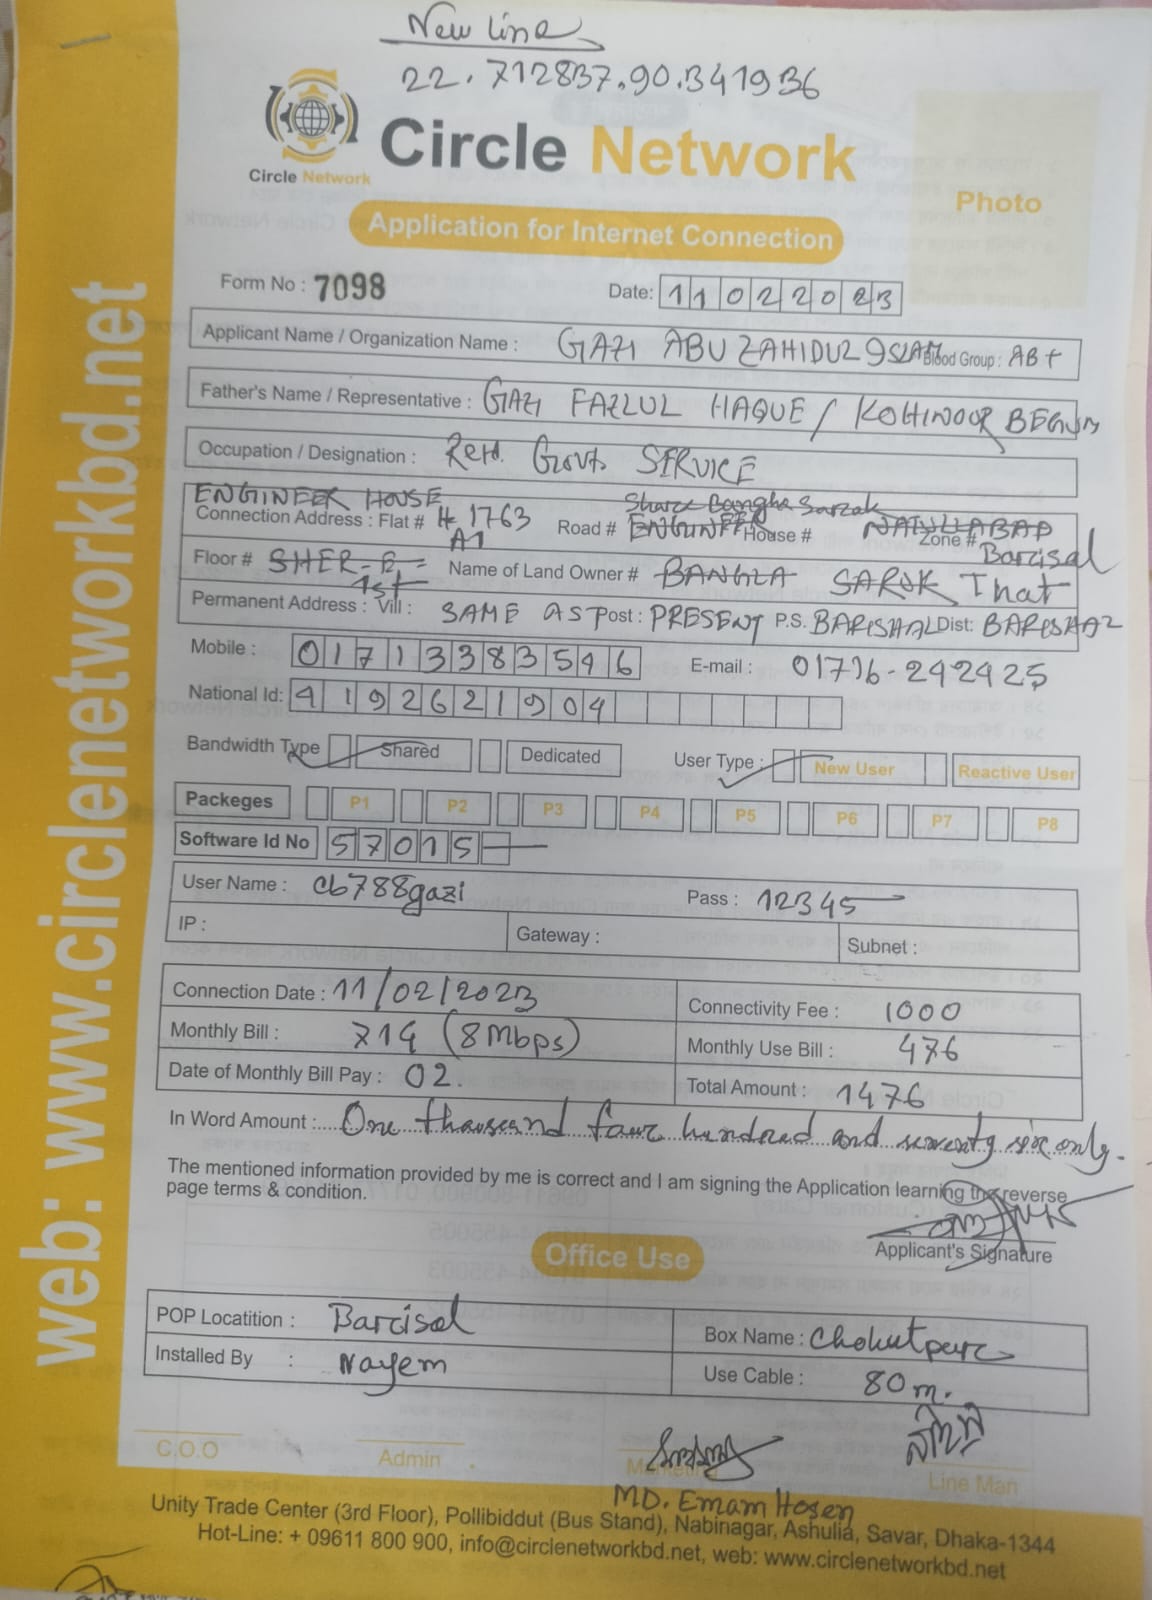 New Line
22.712837.90.341936
Circle Network
Circle Network
Photo
Application for Internet Connection
Form No : 7098 Date: 11022023
Applicant Name / Organization Name : GAZI ABU ZAHIDUL ISLAM Blood Group : AB+
Father's Name / Representative : GAZI FAZLUL HAQUE / KOHINOOR BEGUM
Occupation / Designation : Retd. Govt. SERVICE
ENGINEER HOUSE
Connection Address : Flat # H 1763 Road # House # Zone #
A1 Barcisal
Floor # SHER-E- Name of Land Owner # BANGLA SARUK That
1st
Permanent Address : Vill : SAME AS Post : PRESENT P.S. BARISHAL Dist: BARISHAL
Mobile : 01713383546 E-mail : 01716-242425
National Id: 4192621904
Bandwidth Type Shared Dedicated User Type : New User Reactive User
Packeges P1 P2 P3 P4 P5 P6 P7 P8
Software Id No 57015
User Name : cb788gazi Pass : 12345
IP : Gateway : Subnet :
Connection Date : 11/02/2023 Connectivity Fee : 1000
Monthly Bill : 714 (8Mbps) Monthly Use Bill : 476
Date of Monthly Bill Pay : 02. Total Amount : 1476
In Word Amount : One thausand four hundred and seventy six only.
The mentioned information provided by me is correct and I am signing the Application learning the reverse
page terms & condition.
Applicant's Signature
Office Use
POP Locatition : Barcisal Box Name : Chokutparc
Installed By : Nayem Use Cable : 80 m.
C.O.O Admin Marketing Line Man
MD. Emam Hosen
Unity Trade Center (3rd Floor), Pollibiddut (Bus Stand), Nabinagar, Ashulia, Savar, Dhaka-1344
Hot-Line: + 09611 800 900, info@circlenetworkbd.net, web: www.circlenetworkbd.net
web: www.circlenetworkbd.net